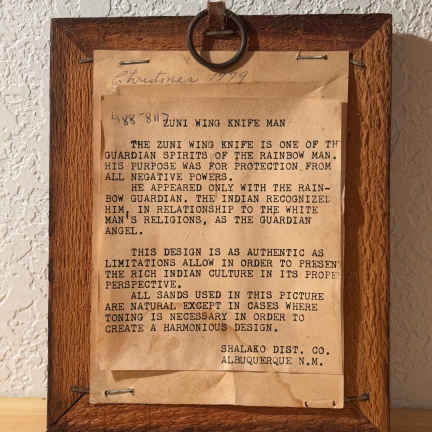 Christmas 1979
488-8117
ZUNI WING KNIFE MAN
THE ZUNI WING KNIFE IS ONE OF TH
GUARDIAN SPIRITS OF THE RAINBOW MAN.
HIS PURPOSE WAS FOR PROTECTION FROM
ALL NEGATIVE POWERS.
HE APPEARED ONLY WITH THE RAIN-
BOW GUARDIAN. THE INDIAN RECOGNIZED
HIM, IN RELATIONSHIP TO THE WHITE
MAN'S RELIGIONS, AS THE GUARDIAN
ANGEL.
THIS DESIGN IS AS AUTHENTIC AS
LIMITATIONS ALLOW IN ORDER TO PRESEN
THE RICH INDIAN CULTURE IN ITS PROPE
PERSPECTIVE.
ALL SANDS USED IN THIS PICTURE
ARE NATURAL EXCEPT IN CASES WHERE
TONING IS NECESSARY IN ORDER TO
CREATE A HARMONIOUS DESIGN.
SHALAKO DIST. CO.
ALBUQUERQUE N.M.